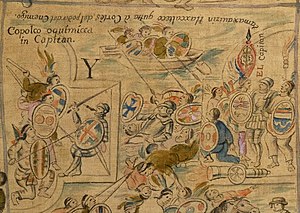 Copolco oquimicca
in Capitan.
Y
Tlamaxauzin tlaxcalteco quita a Cortes del poder del Enemigo.
El Capitan